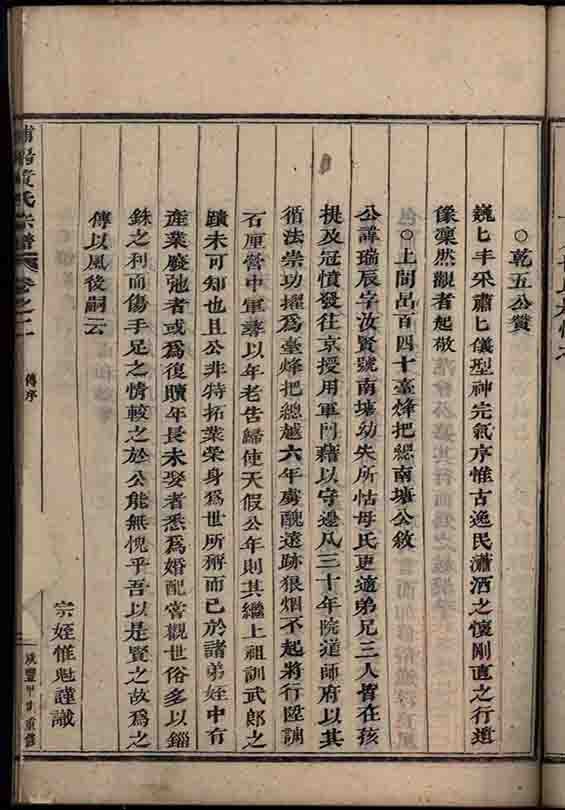 ○乾五公贊
巍匕丰采肅匕儀型神完氣序惟古逸民瀟洒之懷剛直之行遺
像凜然觀者起敬
○上閬邑百四十臺烽把總南塘公敘
公諱瑞辰字汝賢號南塘幼失所怙母氏更適弟兄三人皆在孩
提及冠憤發往京授用軍門藉以守邊凡三十年院道師府以其
循法崇功擢為臺烽把總越六年虜醜遠跡狼烟不起將行陞調
石厘營中軍尋以年老告歸使天假公年則其繼上祖訓武郎之
蹟未可知也且公非特拓業榮身為世所稱而已於諸弟姪中有
產業廢弛者或為復贖年長未娶者悉為婚配嘗觀世俗多以錙
銖之利而傷手足之情較之於公能無愧乎吾以是賢之故為之
傳以風後嗣云
宗姪惟魁謹識
黃氏宗譜 卷之二 傳序
咸豐甲寅重修